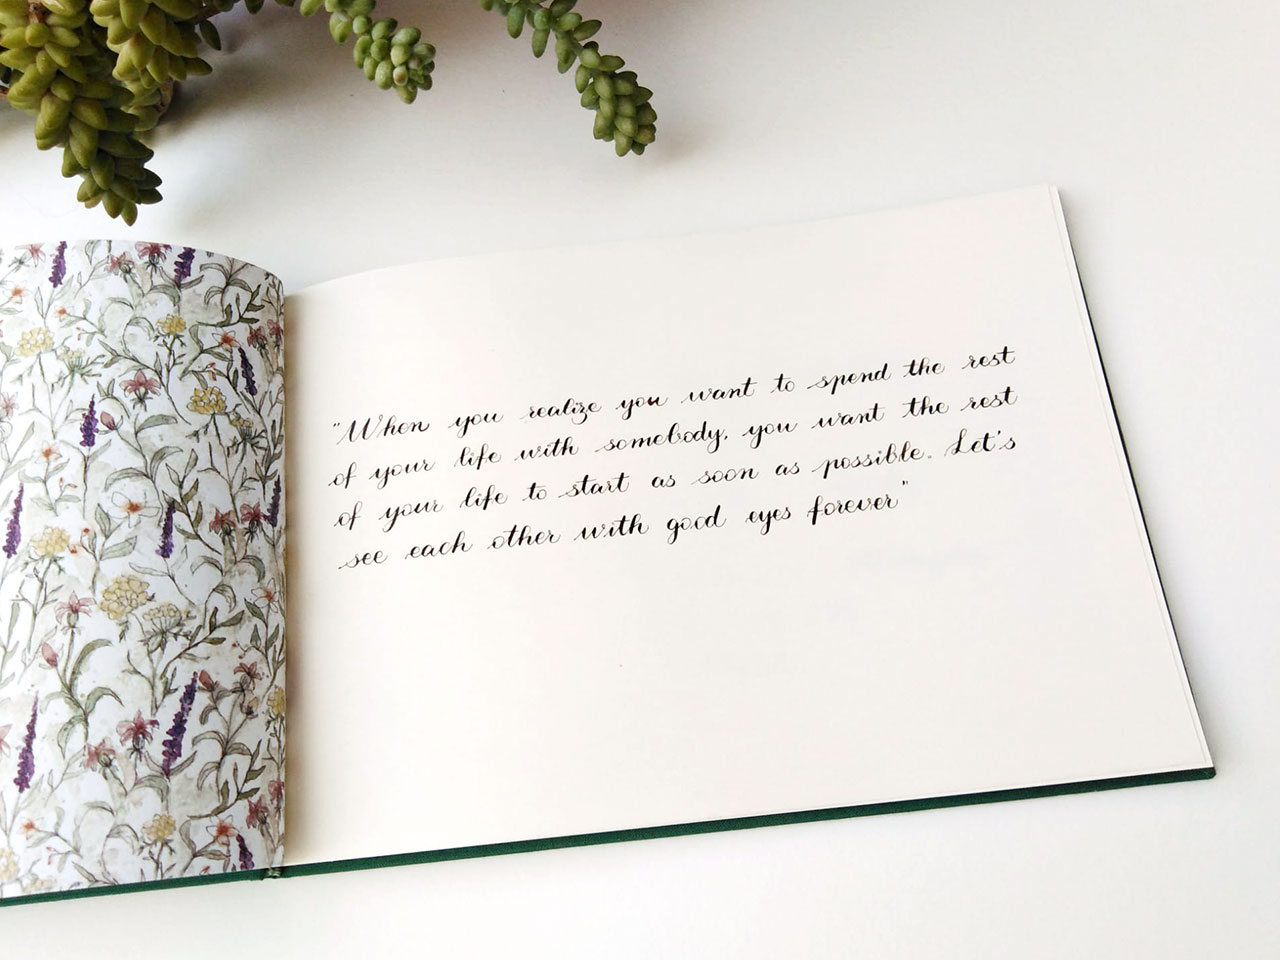 "When you realize you want to spend the rest
of your life with somebody, you want the rest
of your life to start as soon as possible. Let's
see each other with good eyes forever"